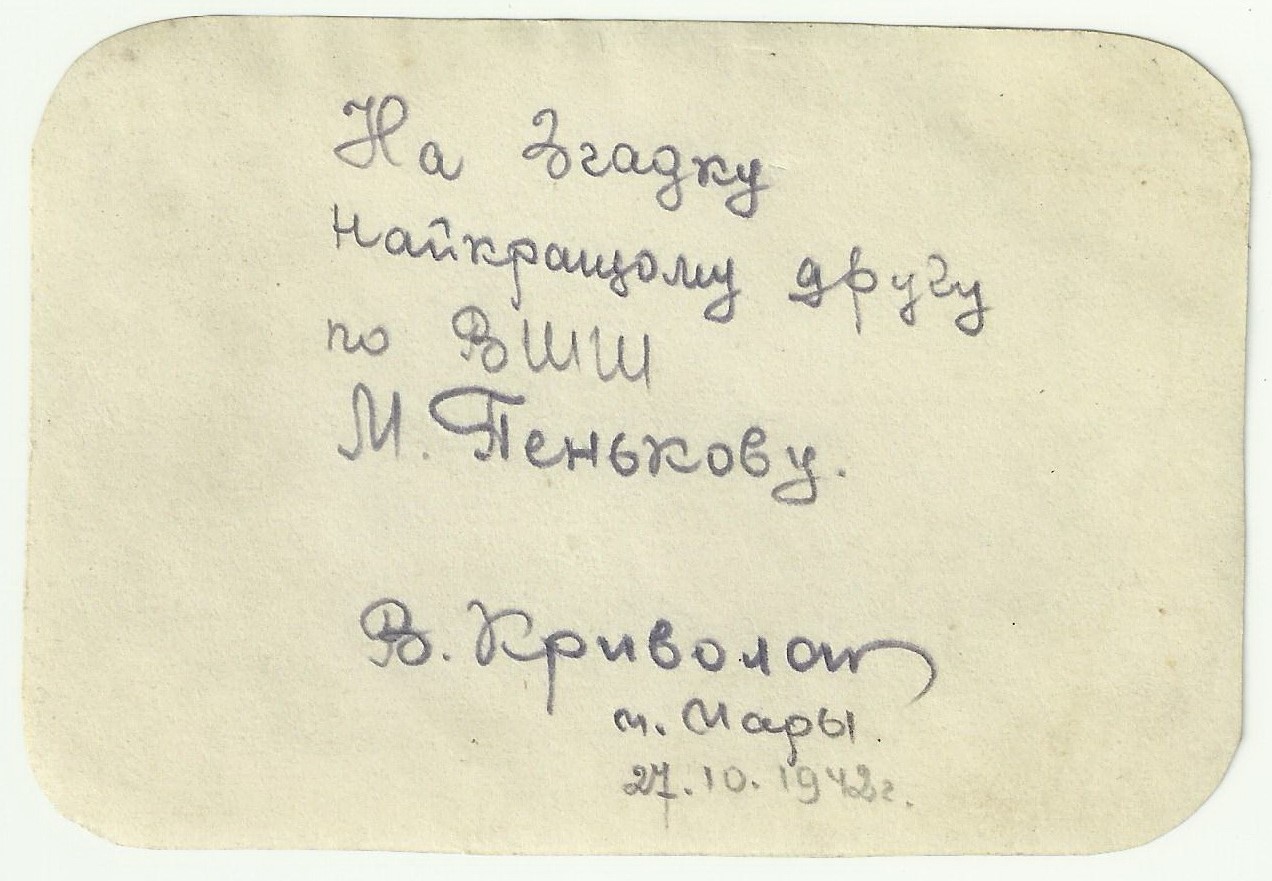 На Згадку
найкращому другу
по ВШШ
М. Пенькову.
В. Криволап
м. Мары.
27.10.1942г.